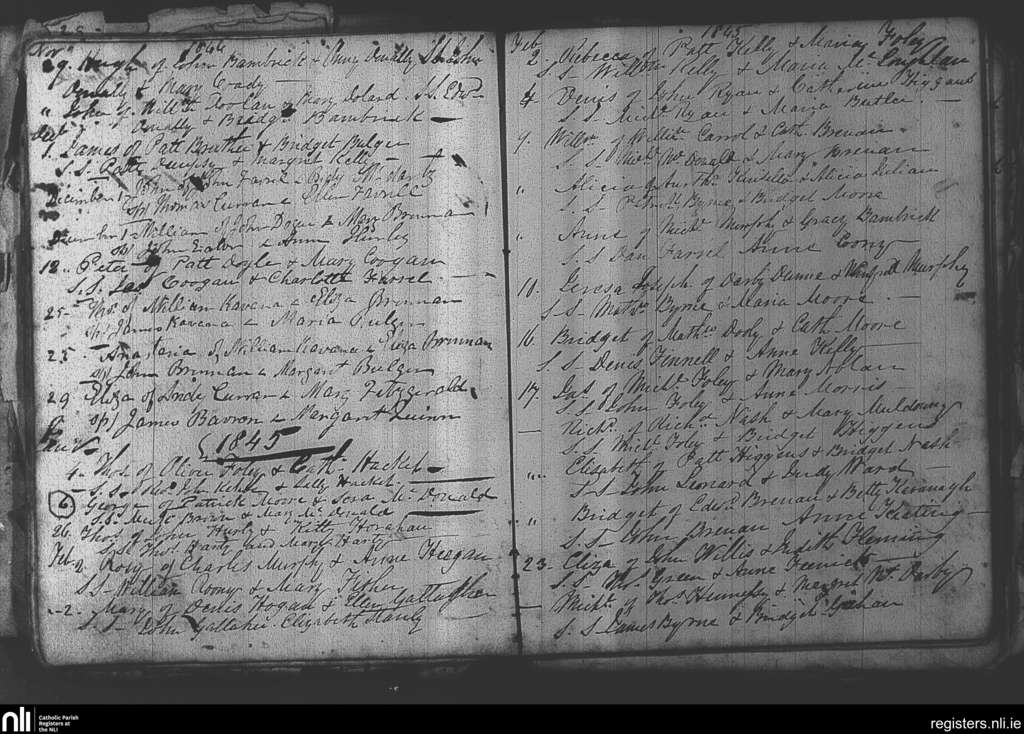 Novr 1844
29. Hugh of John Bambrick &
& Mary Cody
" John of Willm Nolan & Mary
& Bridgt Bambrick
Decr
1. James of Patt & Bridget Bulger
S.S. Patt Dempsey & Margret Kelly
December 1 John of John Farrel
sp/ Thomas Curran & Ellen Farrell
December 1 William of John Doyne & Mary Brennan
sp/ John & Ann
18 " Peter of Patt Doyle & Mary Coogan
S.S. Coogan & Charlotte Farrel
25 Thos. of William Kavana & Eliza Brennan
sp/ James Kavana & Maria Bulger
25 Anastasia of William Kavana & Eliza Brennan
sp/ John Brennan & Margaret Bulger
29 Eliza of Curran & Mary Fitzgerald
sp/ James Barron & Margaret Quinn
1845
4. Thos. of Oliver Foley & Cath. Hacket
S.S. John & Sally Hacket
6 George of Patrick Moore & McDonald
S.S. & Mary McDonald
26. Thos. of John & Kitty Horahan
S.S. Thos. Hartz and Mary Hartz
Feb. 2 Rory of Charles Murphy & Anne Heegan
S.S. William & Mary Fisher
2. Mary of Denis Hogan & Ellen Gallagher
S.S. John Gallaher Elizabeth
Feb 1845
2. Rebecca of Patt Kelly & Maria Foley
S.S. Willm Kelly & Maria McLoughlan
4. Denis of John Ryan & Catherine Higgans
S.S. Michl Ryan & Maria Butler
9. Willm of Willm Carrol & Cath Brenan
S.S. Michl McDonald & Mary Brenan
" Alicia of Arthr Kinsela & Alicia
S.S. Byrne & Bridget Moore
" Anne of Michl Murphy & Gracy Bambrick
S.S. Dan Farrel Anne
10. Teresa Joseph of Darby Dunne & Winifred Murphy
S.S. Mathw Byrne & Maria Moore
16. Bridget of Mathw Dooly & Cath Moore
S.S. Denis Fennell & Anne Kelly
17. Jas. of Michl Foley & Mary Nolan
S.S. John Foley & Anne Morris
— Richd of Richd Nash & Mary Muldowny
S.S. Michl Foley & Bridget Higgens
" Elizabeth of Patt Higgins & Bridget Nash
S.S. John Leonard & Judy Ward
" Bridget of Edwd Brenan & Betty Kavanagh
S.S. John Brenan Anne Keatting
23. Eliza of John Willis & Judith Flemming
S.S. Green & Anne
— Michl of Thos. & Margret Darby
S.S. James Byrne & Bridget Gahan
nli
Catholic Parish
Registers at
the NLI
registers.nli.ie